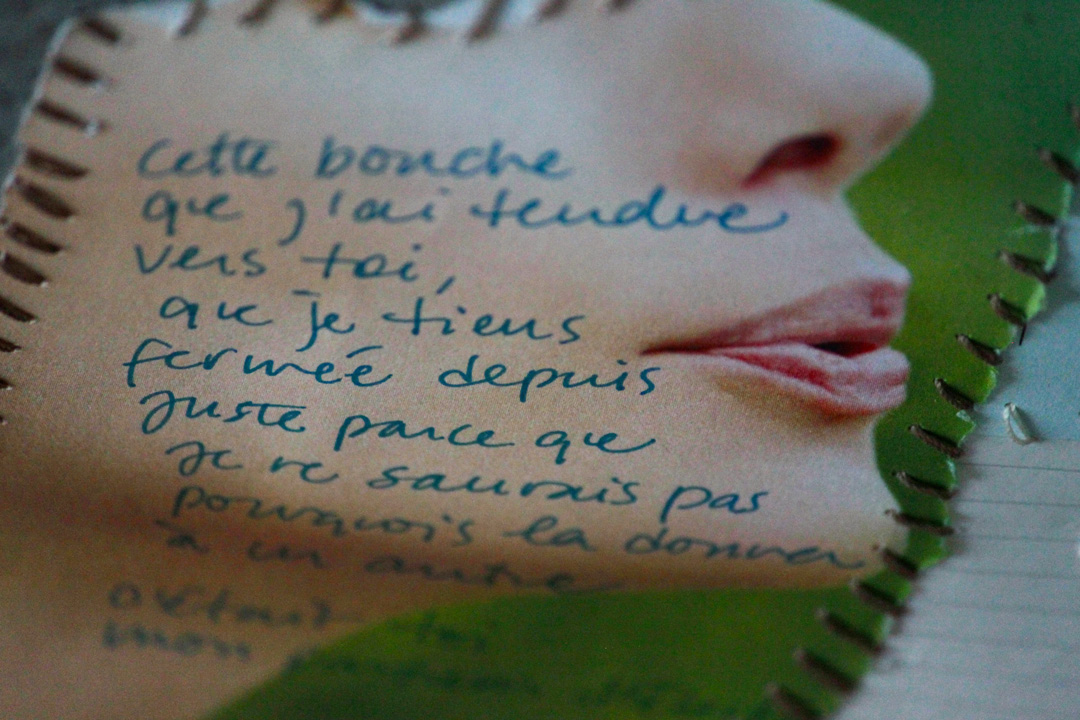 Cette bouche
que j'ai tendue
vers toi,
que je tiens
fermée depuis
juste parce que
je ne saurais pas
pourquois la donner
à un autre
c'était toi
mon